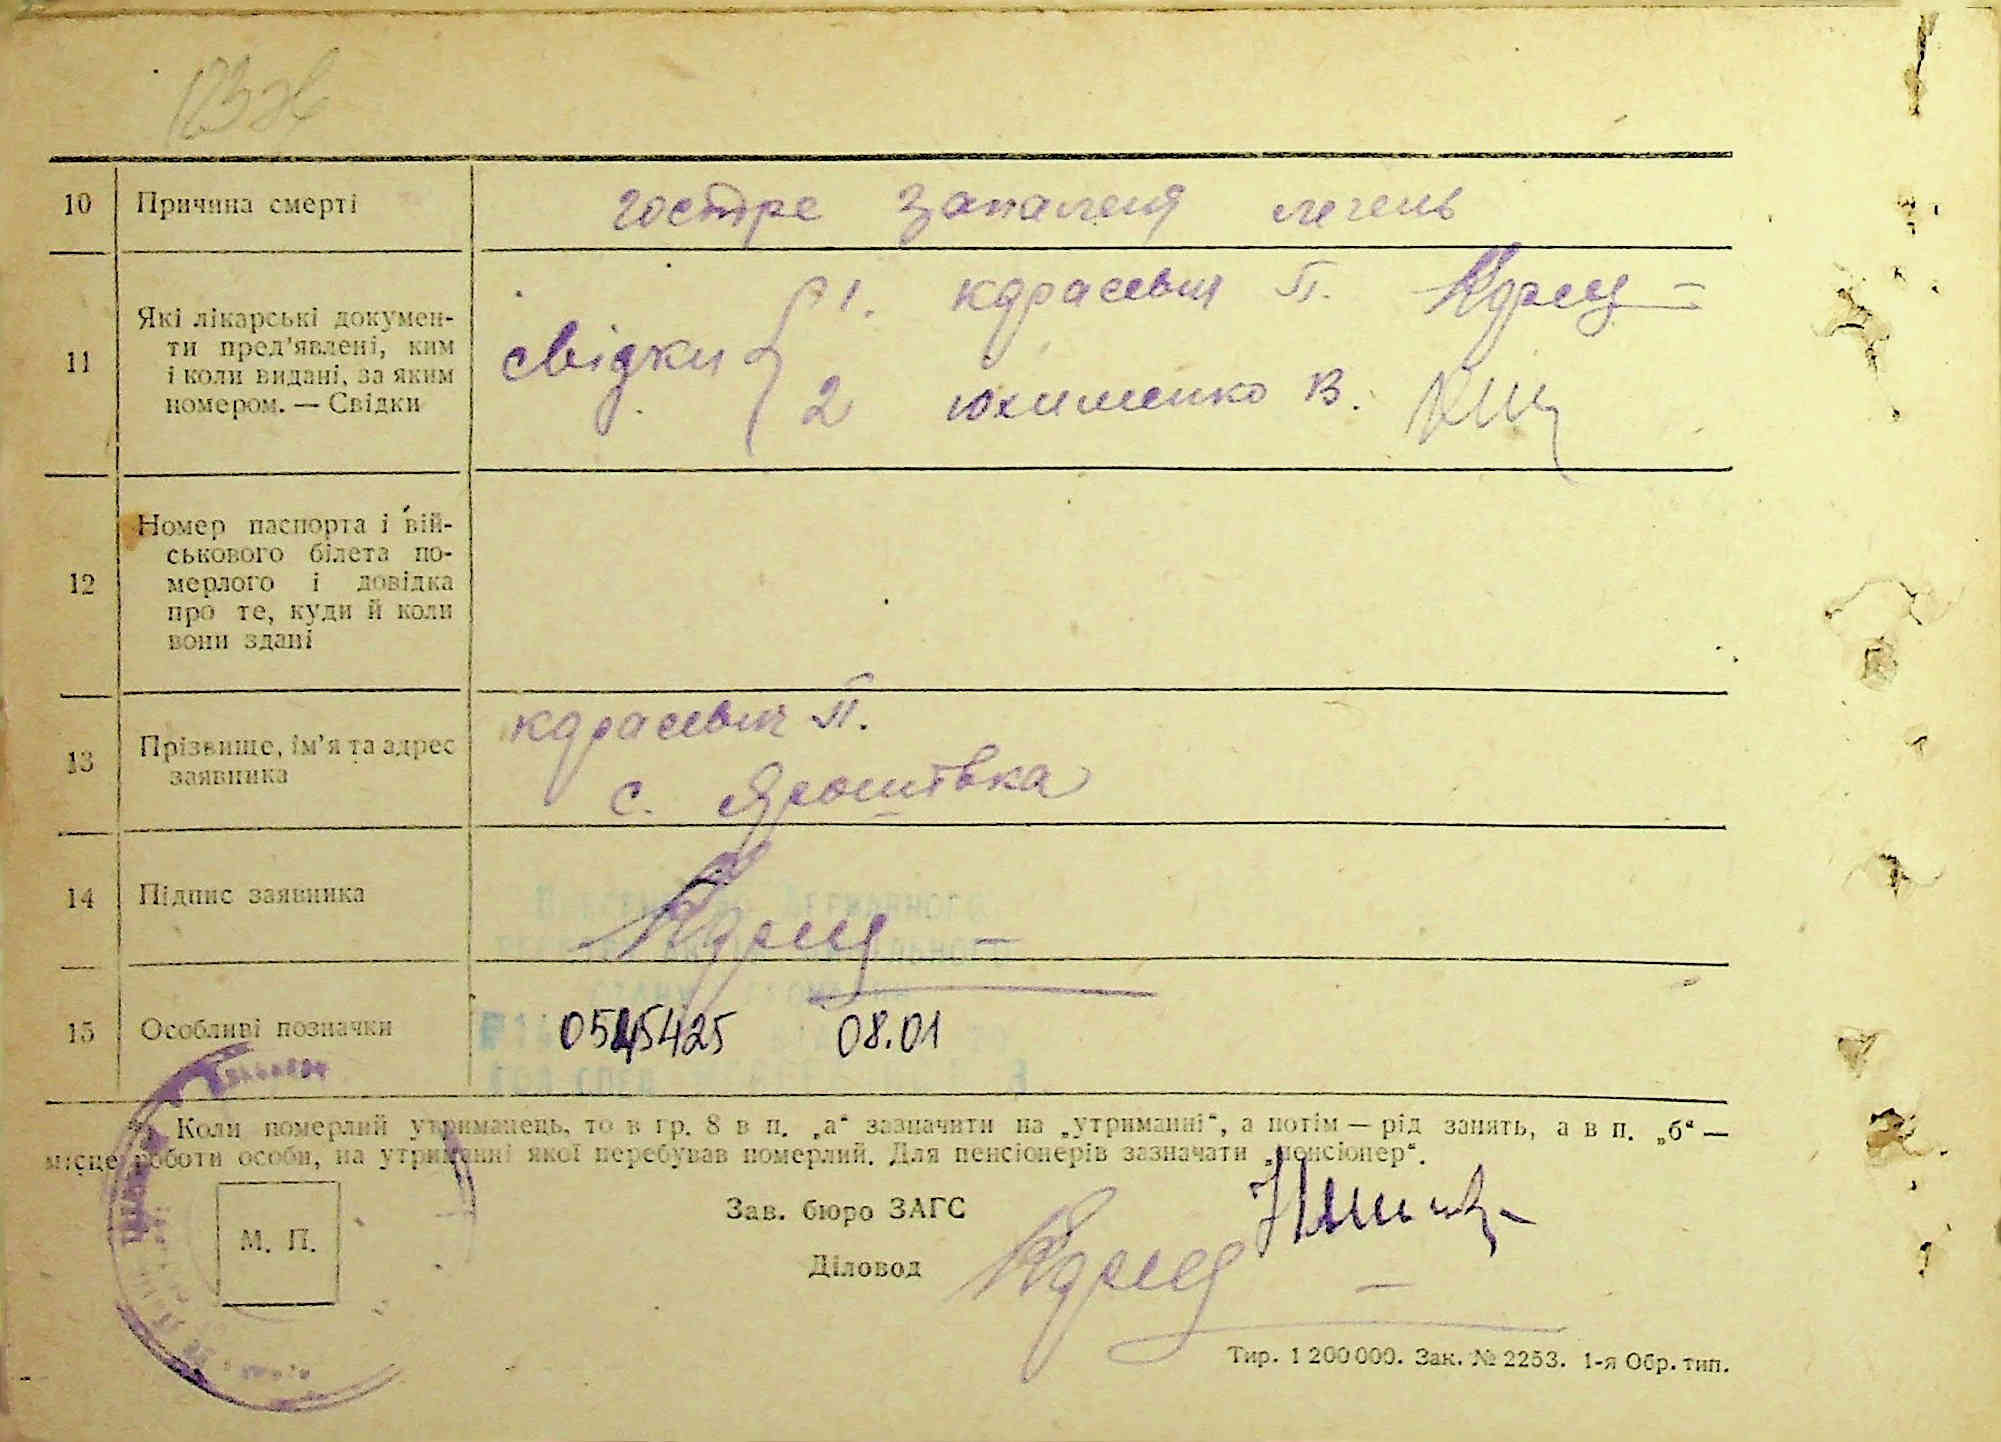 10 Причина смерті гостре запаленя легень
11 Які лікарські докумен-
ти пред'явлені, ким
і коли видані, за яким
номером. — Свідки
свідки { 1. Кдрасевич П.
2 Юхименко В.
12 Номер паспорта і вій-
ськового білета по-
мерлого і довідка
про те, куди й коли
вони здані
13 Прізвище, ім'я та адрес
заявника
Кдрасевич П.
с. Ярошівка
14 Підпис заявника
15 Особливі позначки 0545425 08.01
Коли померлий утриманець, то в гр. 8 в п. „а“ зазначити на „утриманні“, а потім — рід занять, а в п. „б“ —
місце роботи особи, на утриманні якої перебував померлий. Для пенсіонерів зазначати „пенсіонер“.
М. П.
Зав. бюро ЗАГС
Діловод
Тир. 1 200 000. Зак. № 2253. 1-я Обр. тип.